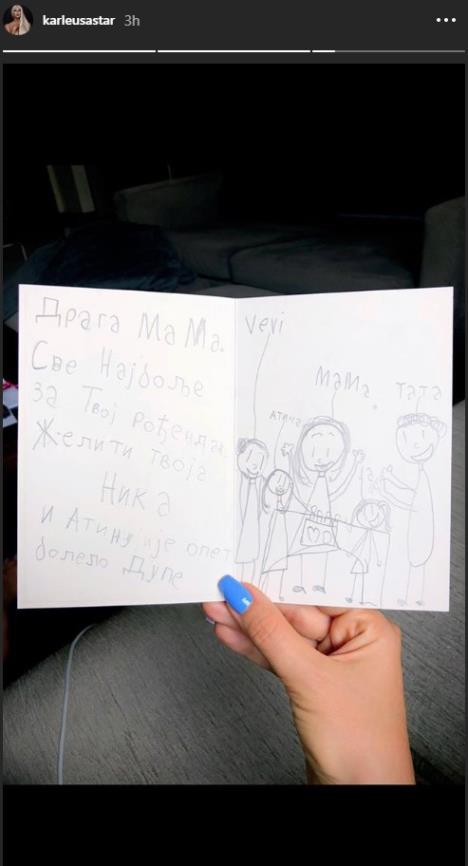 karleusastar 3h
Драга МаМа.
Све Најбоље
за Твој рођендан.
Жели ти твоја
Ника
и Атину је опет
болело Дупе
Vevi
МаМа
тата
атина
ја